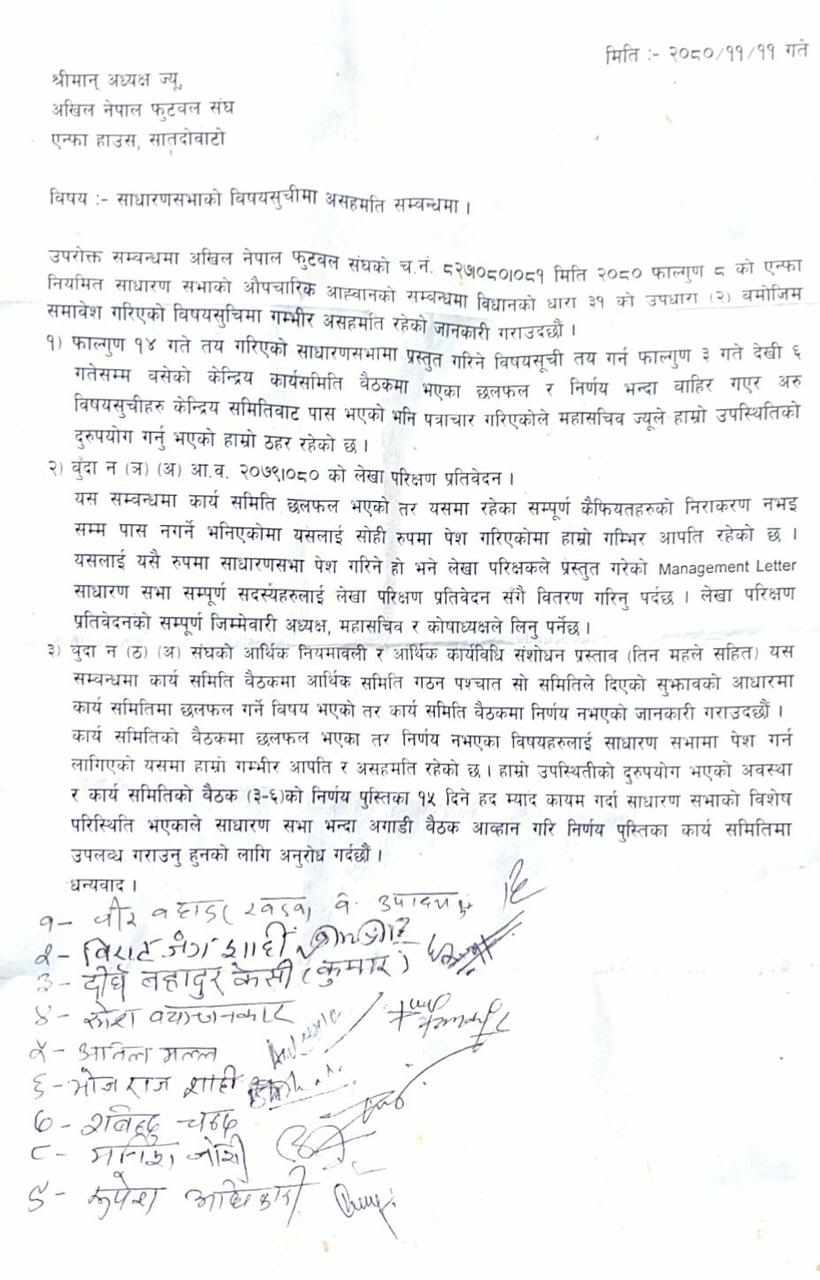 मिति :- २०८०/११/११ गते
श्रीमान् अध्यक्ष ज्यू,
अखिल नेपाल फुटवल संघ
एन्फा हाउस, सातदोवाटो
विषय :- साधारणसभाको विषयसुचीमा असहमति सम्वन्धमा ।
उपरोक्त सम्वन्धमा अखिल नेपाल फुटवल संघको च.नं. ८२७।०८०।०८१ मिति २०८० फाल्गुण ८ को एन्फा
नियमित साधारण सभाको औपचारिक आह्वानको सम्वन्धमा विधानको धारा ३१ को उपधारा (२) वमोजिम
समावेश गरिएको विषयसुचिमा गम्भीर असहमति रहेको जानकारी गराउदछौं ।
१) फाल्गुण १४ गते तय गरिएको साधारणसभामा प्रस्तुत गरिने विषयसूची तय गर्न फाल्गुण ३ गते देखी ६
गतेसम्म वसेको केन्द्रिय कार्यसमिति वैठकमा भएका छलफल र निर्णय भन्दा वाहिर गएर अरु
विषयसुचीहरु केन्द्रिय समितिवाट पास भएको भनि पत्राचार गरिएकोले महासचिव ज्यूले हाम्रो उपस्थितिको
दुरुपयोग गर्नु भएको हाम्रो ठहर रहेको छ ।
२) वुंदा न (ञ) (अ) आ.व. २०७९।०८० को लेखा परिक्षण प्रतिवेदन ।
यस सम्वन्धमा कार्य समिति छलफल भएको तर यसमा रहेका सम्पूर्ण कैफियतहरुको निराकरण नभइ
सम्म पास नगर्ने भनिएकोमा यसलाई सोही रुपमा पेश गरिएकोमा हाम्रो गम्भिर आपति रहेको छ ।
यसलाई यसै रुपमा साधारणसभा पेश गरिने हो भने लेखा परिक्षकले प्रस्तुत गरेको Management Letter
साधारण सभा सम्पूर्ण सदस्यहरुलाई लेखा परिक्षण प्रतिवेदन संगै वितरण गरिनु पर्दछ । लेखा परिक्षण
प्रतिवेदनको सम्पूर्ण जिम्मेवारी अध्यक्ष, महासचिव र कोषाध्यक्षले लिनु पर्नेछ ।
३) वुदा न (ठ) (अ) संघको आर्थिक नियमावली र आर्थिक कार्यविधि संशोधन प्रस्ताव (तिन महले सहित) यस
सम्वन्धमा कार्य समिति वैठकमा आर्थिक समिति गठन पश्चात सो समितिले दिएको सुझावको आधारमा
कार्य समितिमा छलफल गर्ने विषय भएको तर कार्य समिति वैठकमा निर्णय नभएको जानकारी गराउदछौं ।
कार्य समितिको वैठकमा छलफल भएका तर निर्णय नभएका विषयहरुलाई साधारण सभामा पेश गर्न
लागिएको यसमा हाम्रो गम्भीर आपति र असहमति रहेको छ । हाम्रो उपस्थितीको दुरुपयोग भएको अवस्था
र कार्य समितिको वैठक (३-६)को निर्णय पुस्तिका १५ दिने हद म्याद कायम गर्दा साधारण सभाको विशेष
परिस्थिति भएकाले साधारण सभा भन्दा अगाडी वैठक आव्हान गरि निर्णय पुस्तिका कार्य समितिमा
उपलव्ध गराउनु हुनको लागि अनुरोध गर्दछौं ।
धन्यवाद ।
१- वीर वहादुर खडका व. उपाध्यक्ष
२- विराट जंग शाही
३- दीर्घ बहादुर केसी (कुमार)
४-
५- अनिल मल्ल
६- भोज राज शाही
७- चन्द
८- मनिष जोशी
९- रुपेश अधिकारी